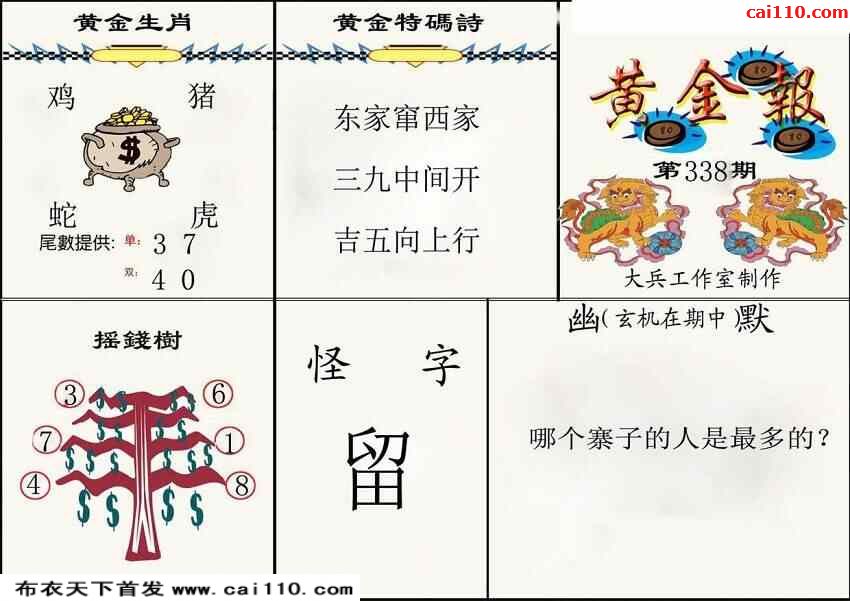 cai110.com
黄金生肖
鸡 猪
$
蛇 虎
尾數提供: 单: 3 7
双: 4 0
黄金特碼詩
东家窜西家
三九中间开
吉五向上行
黄金報
第338期
大兵工作室制作
摇錢樹
3 6
7 1
4 8
怪 字
留
幽(玄机在期中)默
哪个寨子的人是最多的?
布衣天下首发 www.cai110.com